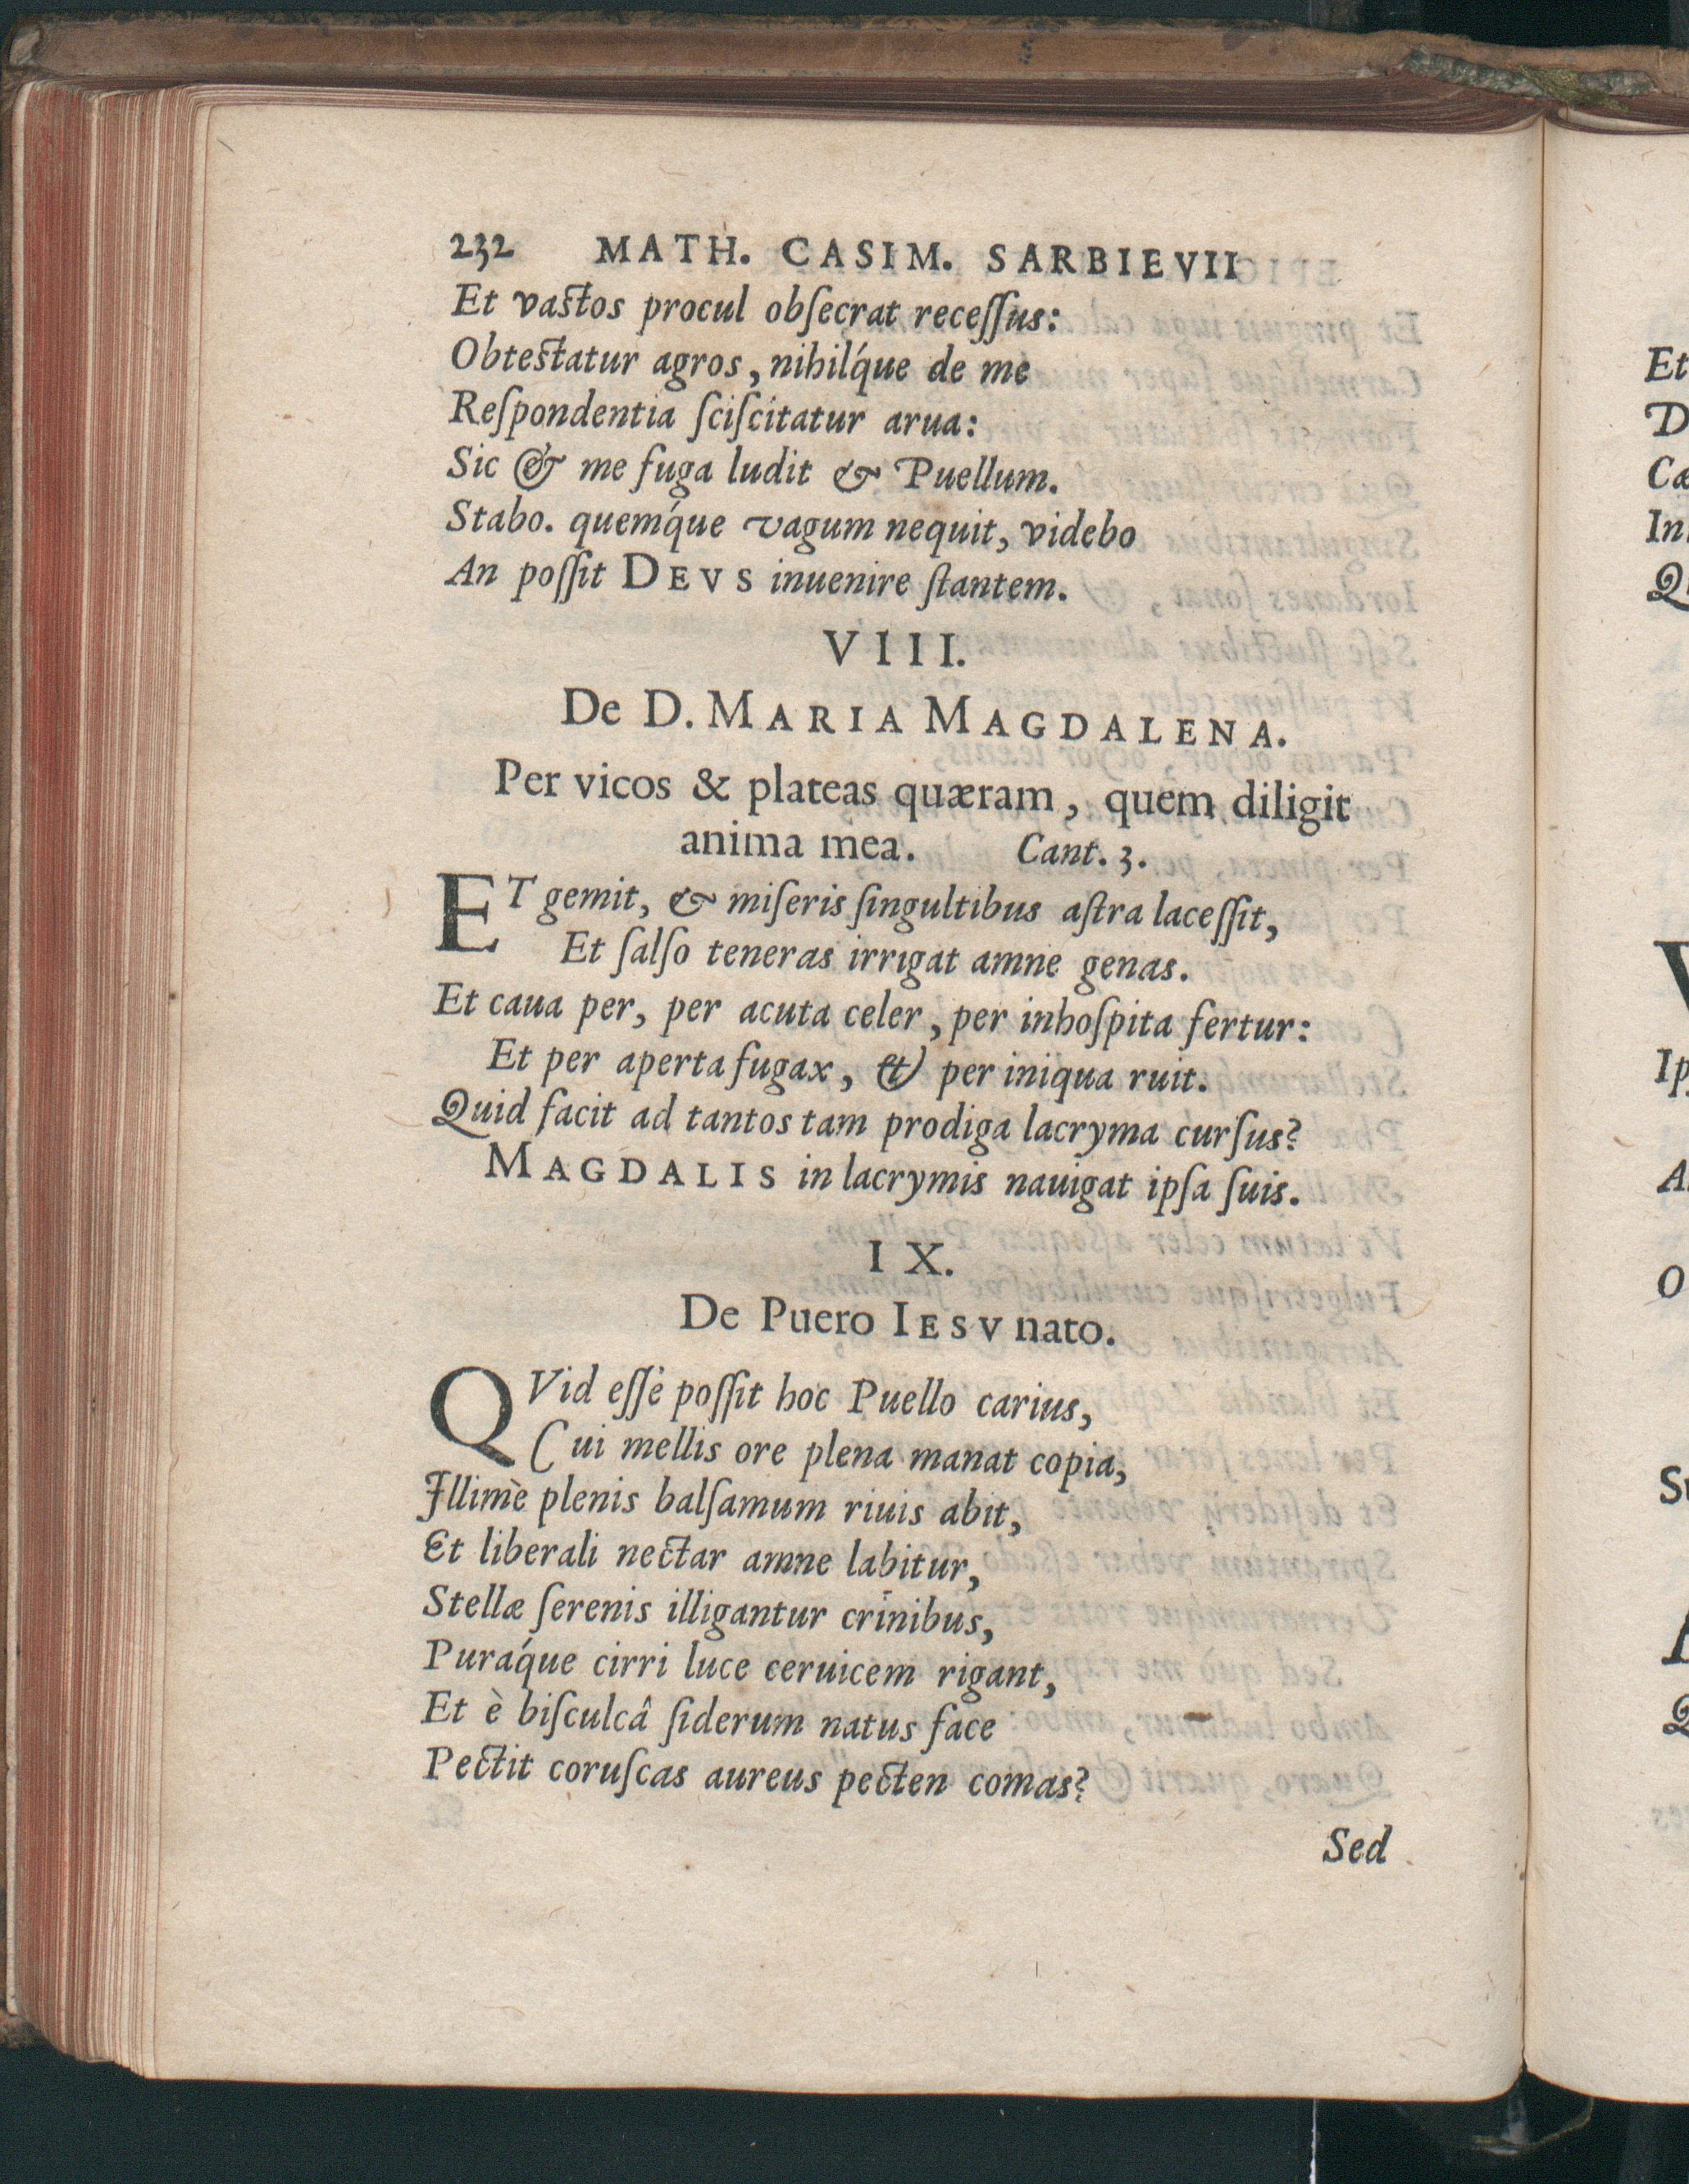 232 MATH. CASIM. SARBIEVII
Et vastos procul obſecrat receſſus:
Obtestatur agros, nihilq́ue de me
Reſpondentia ſciſcitatur arua:
Sic & me fuga ludit & Puellum.
Stabo. quemq́ue vagum nequit, videbo
An poſſit DEVS inuenire ſtantem.
VIII.
De D. MARIA MAGDALENA.
Per vicos & plateas quæram, quem diligit
anima mea. Cant. 3.
ET gemit, & miſeris ſingultibus aſtra laceſſit,
Et ſalſo teneras irrigat amne genas.
Et caua per, per acuta celer, per inhoſpita fertur:
Et per aperta fugax, & per iniqua ruit.
Quid facit ad tantos tam prodiga lacryma curſus?
MAGDALIS in lacrymis nauigat ipſa ſuis.
IX.
De Puero IESV nato.
QVid eſſe poſſit hoc Puello carius,
Cui mellis ore plena manat copia,
Illimè plenis balſamum riuis abit,
Et liberali nectar amne labitur,
Stellæ ſerenis illigantur crinibus,
Puraq́ue cirri luce ceruicem rigant,
Et è biſculcâ ſiderum natus face
Pectit coruſcas aureus pecten comas?
Sed
Et
D
Cæ
In